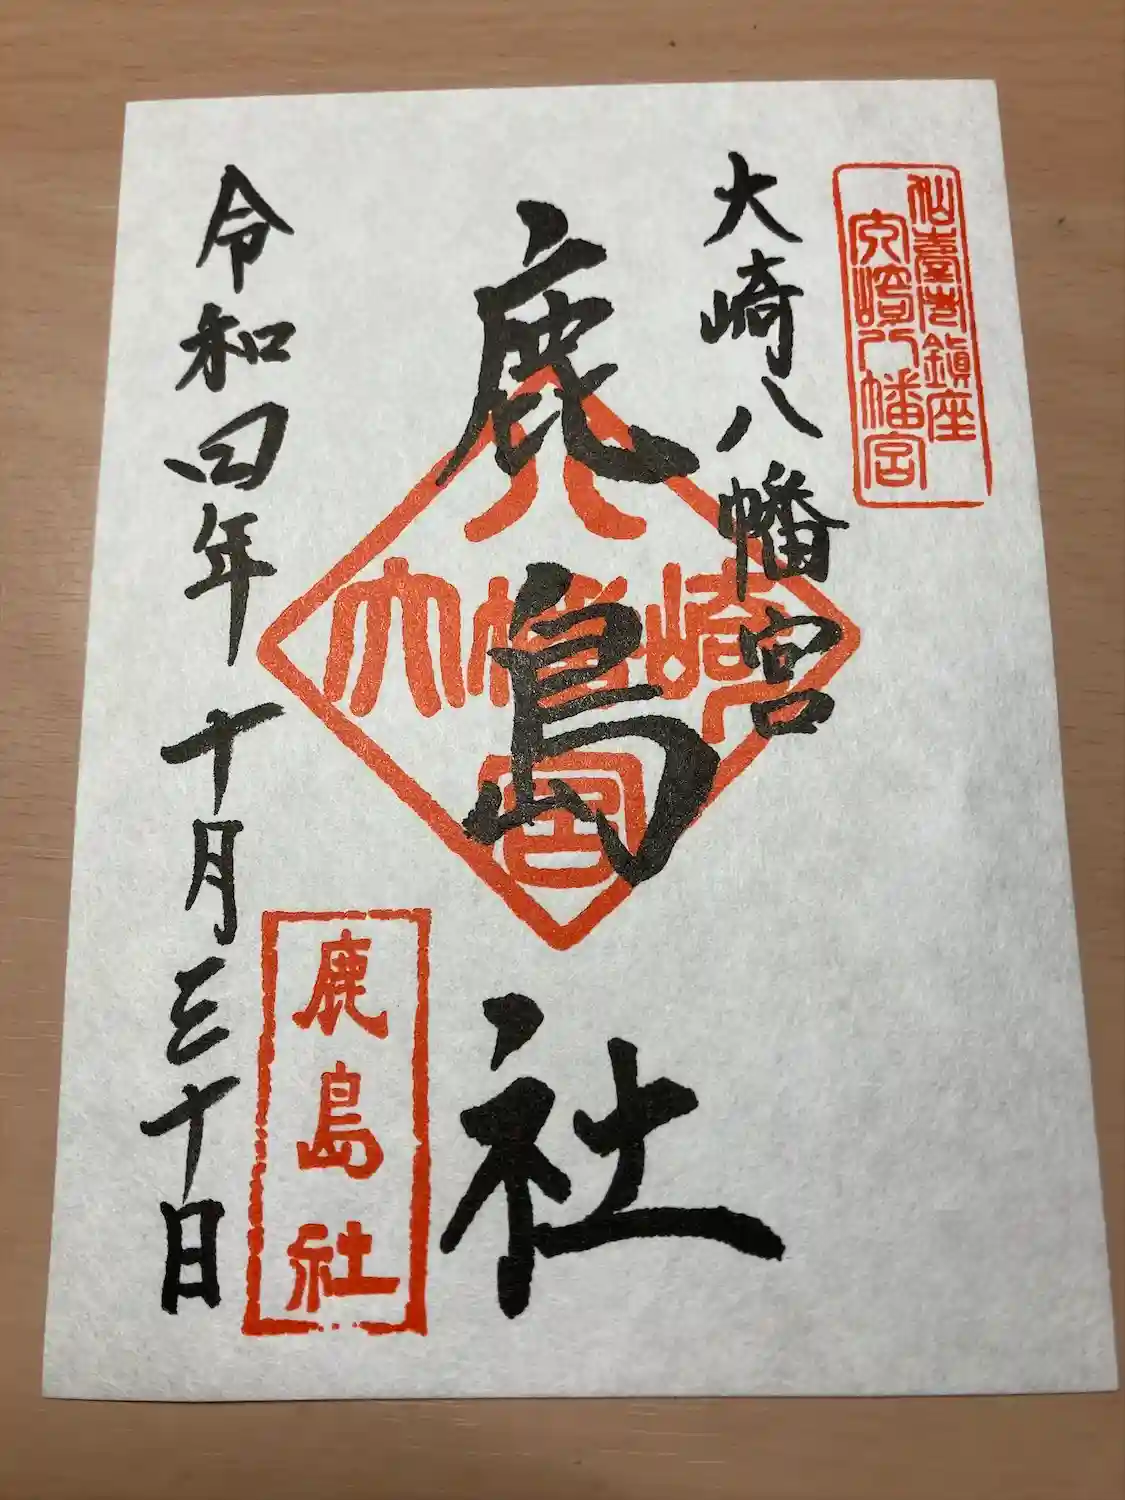 仙臺鎮座
八幡宮
大崎八幡宮
鹿島社
大崎
八幡宮
鹿島社
令和四年十月三十日